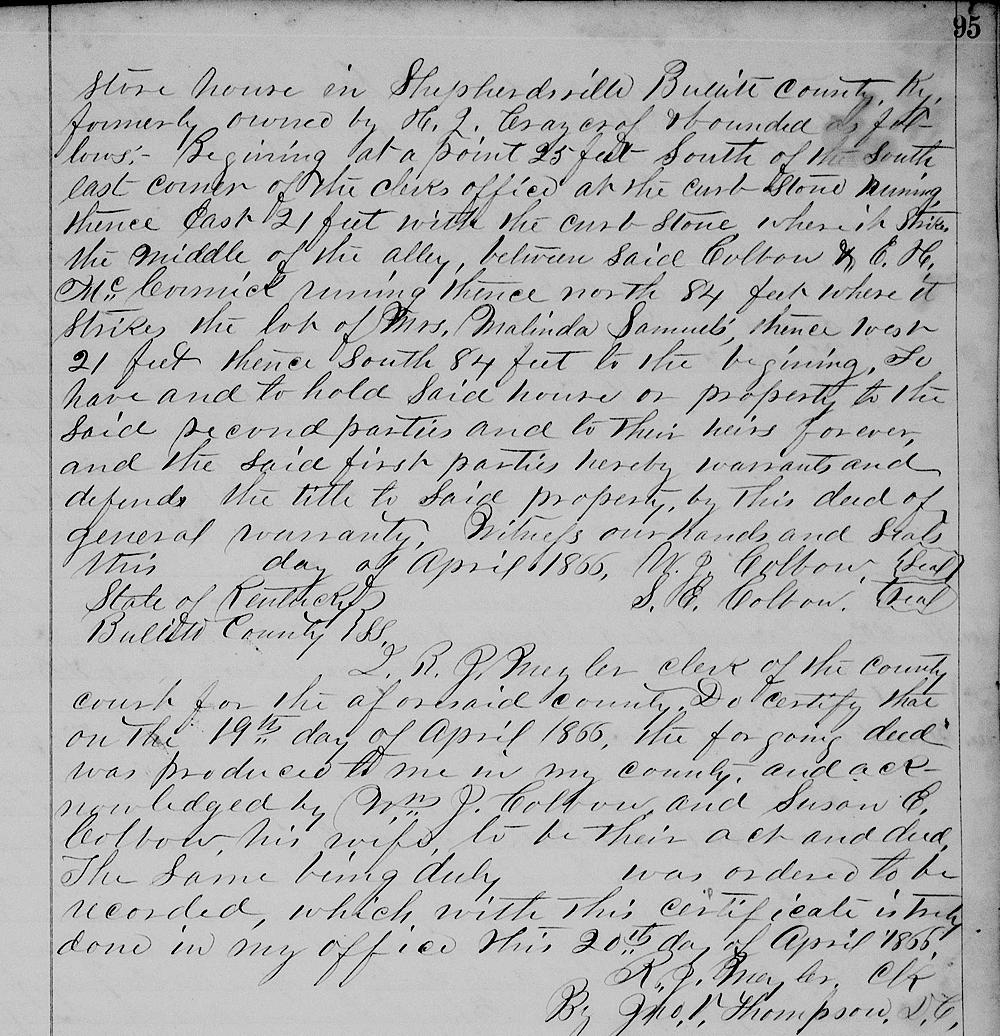 95
store house in Shepherdsville Bullitt County, Ky,
formerly owned by H. J. Craycrof & bounded as fol-
lows;- Begining at a point 25 feet South of the South
east corner of the clerks office at the curb stone runing
thence East 21 feet with the curb stone where it strikes
the middle of the alley, between said Colbow & E. H.
Mc. Cormick runing thence north 84 feet where it
strikes the lot of Mrs, Malinda Samuels, thence west
21 feet thence South 84 feet to the begining, To
have and to hold said house or property to the
said second parties and to their heirs forever,
and the said first parties hereby warrants and
defends the title to said property, by this deed of
general warranty, Witness our hands and seals
this day of April 1866, W. J. Colbow, (Seal)
State of Kentucky } S. E. Colbow. (Seal)
Bullitt County } SS.
I. R. J. Meyler clerk of the county
court for the aforesaid county. Do certify that
on the 19th day of April 1866, the forgoing deed
was produced to me in my county. and ack-
nowledged by Wm J. Colbow, and Susan E.
Colbow, his wife, to be their act and deed,
The same being duly was ordered to be
recorded, which with this certificate is truly
done in my office this 20th day of April 1866,
R. J. Meyler, Clk
By Jno. V. Thompson, D.C,